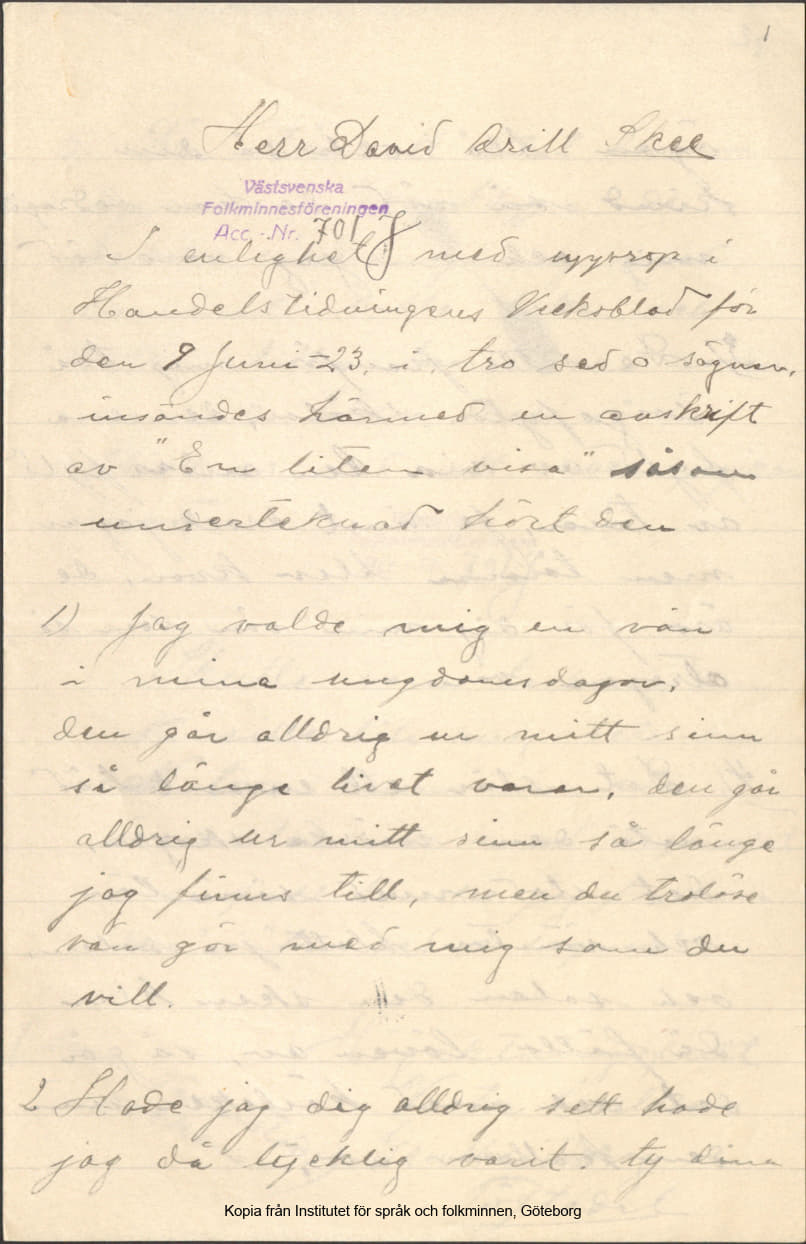 1
Herr David Arill Skee
Västsvenska
Folkminnesföreningen
Acc.-Nr. 701
I enlighet med upprop i
Handelstidningens Veckoblad för
den 9 Juni -23. i. tro sed o sägner.
insändes härmed en avskrift
av "En liten visa" såsom
undertecknad hört den
1) Jag valde mig en vän
i mina ungdomsdagar.
den går alldrig ur mitt sinn
så länge livet varar, den går
alldrig ur mitt sinn så länge
jag finns till, men du trolöse
vän gör med mig som du
vill.
2 Hade jag dig alldrig sett hade
jag då lycklig varit. ty dina
Kopia från Institutet för språk och folkminnen, Göteborg